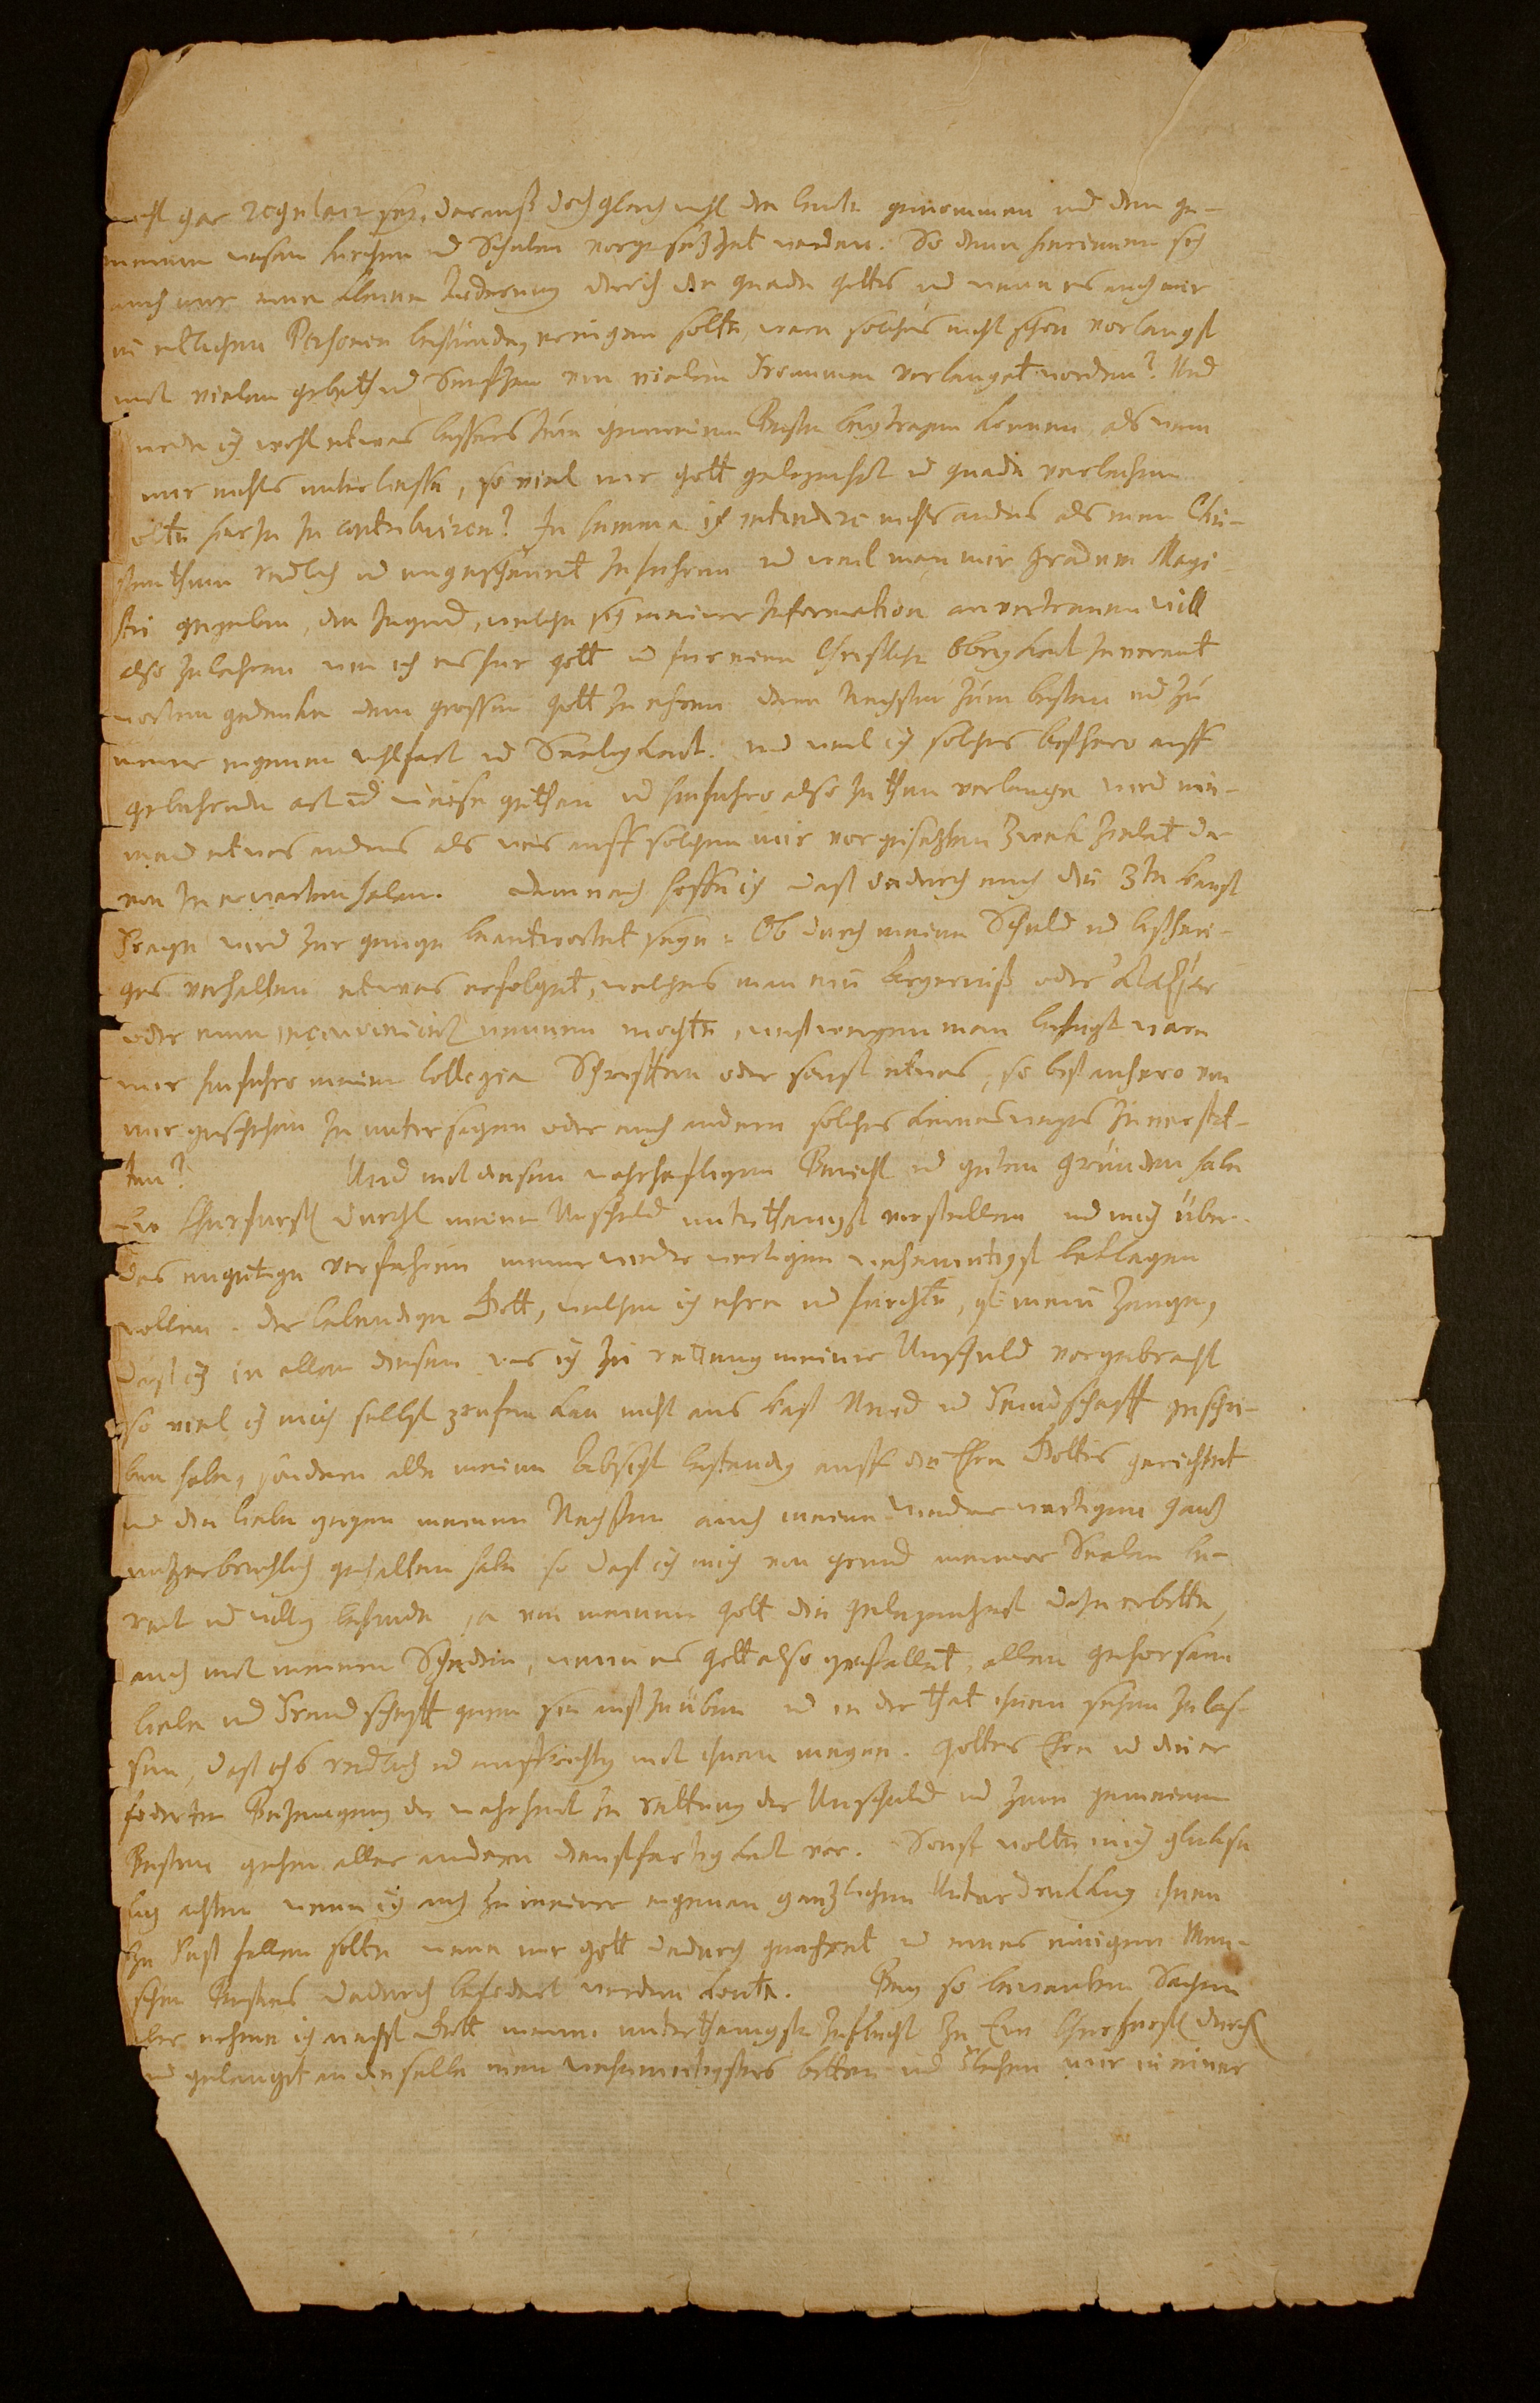 nicht gar regulair sey, darauß doch gleichwohl die leute genommen und den ge-
meinen wesen kirchen und Schulen vorgesetzet werden. So denn hierinnen sich
auch nur eine kleine änderung durch die gnade gottes und wenn es auch nur
in etlichen Personen bestünde, ereignen solte, wäre solches nicht schon vorlängst
mit vielen gebeth und Seufftzen von vielen Frommen verlanget worden? Und
werde ich wohl etwas bessers zum gemeinen Besten beytragen können, als wenn
nur nichts unterliesse, so viel mir gott gelegenheit und gnade verleihen
wolte hierzu zu contribuiren? In summa ich intendire nichts anders als mein Chri-
stenthum redlich und ungescheuet zu führen und weil man mir gradum Magi-
stri gegeben, die Jugend, welche sich meiner Information anvertrauen will
also zu lehren wie ich es für gott und für einer Christlichen Obrigkeit zu verant
worten gedenke dem grossen gott zu ehren dem Nechsten zum besten und zu
meiner eigenen wohlfart und Seeligkeit. und weil ich solches bißhero auff
gebührende art und weise gethan und hinführo also zu thun verlange wird nie-
mand etwas anders als was auff solchen mir vorgesetzten Zweck zielet da
von zu erwarten haben. Demnach hoffe ich daß dadurch auch die 3te haupt
Frage wird zur genüge beantwortet seyn: Ob durch meine Schuld und bißheri-
ges verhalten etwas erfolget, welches man ein Aergerniß oder
oder einen inconvenientz nennen möchte, weßwegen man befugt wäre
mir hinführo meine Collegia Schrifften oder sonst etwas, so bißanhero von
mir geschehen zu untersagen oder auch andern solches keineswegs zu verstat-
ten? Und mit diesem wahrhafftigen Bericht und guten gründen habe
Ew Churfürstl Durchl meine Unschuld unterthänigst vorstellen und mich über
das ungütige verfahren meiner wiederwertigen wehemütigst beklagen
wollen. Der lebendige Gott, welchen ich ehre und fürchte, ist mein Zeuge,
daß ich in allen diesen was ich zu rettung meiner Unschuld vorgebracht
so viel ich mich selbst prüfen kan nicht aus haß Neid und Feindschafft geschrie-
ben habe, sondern alle meine Absicht beständig auff die Ehre Gottes gerichtet
und die liebe gegen meinen Nechsten auch meine wiederwertigen gantz
unzerbrechlich gehalten habe so daß ich mich von grund meiner Seelen be-
reit und willig befinde ja von meinem gott die gelegenheit dazu erbitte,
auch mit meinem Schaden, wenn es gott also gefället, allen gehorsam
liebe und Freundschafft gegen sie außzuüben und in der that ihnen sehen zu las-
sen, daß ichs redlich und auffrichtig mit ihnen meyne. Gottes Ehre und die er
foderte Bezeugung der wahrheit zu rettung der Unschuld und zum gemeinen
Besten gehen aller andern dienstfertigkeit vor. Sonst wolte mich glücksee
lig achten wenn ich auch zu meiner eigenen gäntzlichen Unterdrückung ihnen
zu Fuß fallen solte wenn nur gott dadurch geehret und eines einigen Men-
schen Bestes dadurch befodert werden könte. Bey so bewandten Sachen
aber nehme ich nechst Gott meine unterthänigste zuflucht zu Ew Churfürstl Durchl
und gelanget an dieselbe mein wehemütigstes bitten und flehen mir in einer